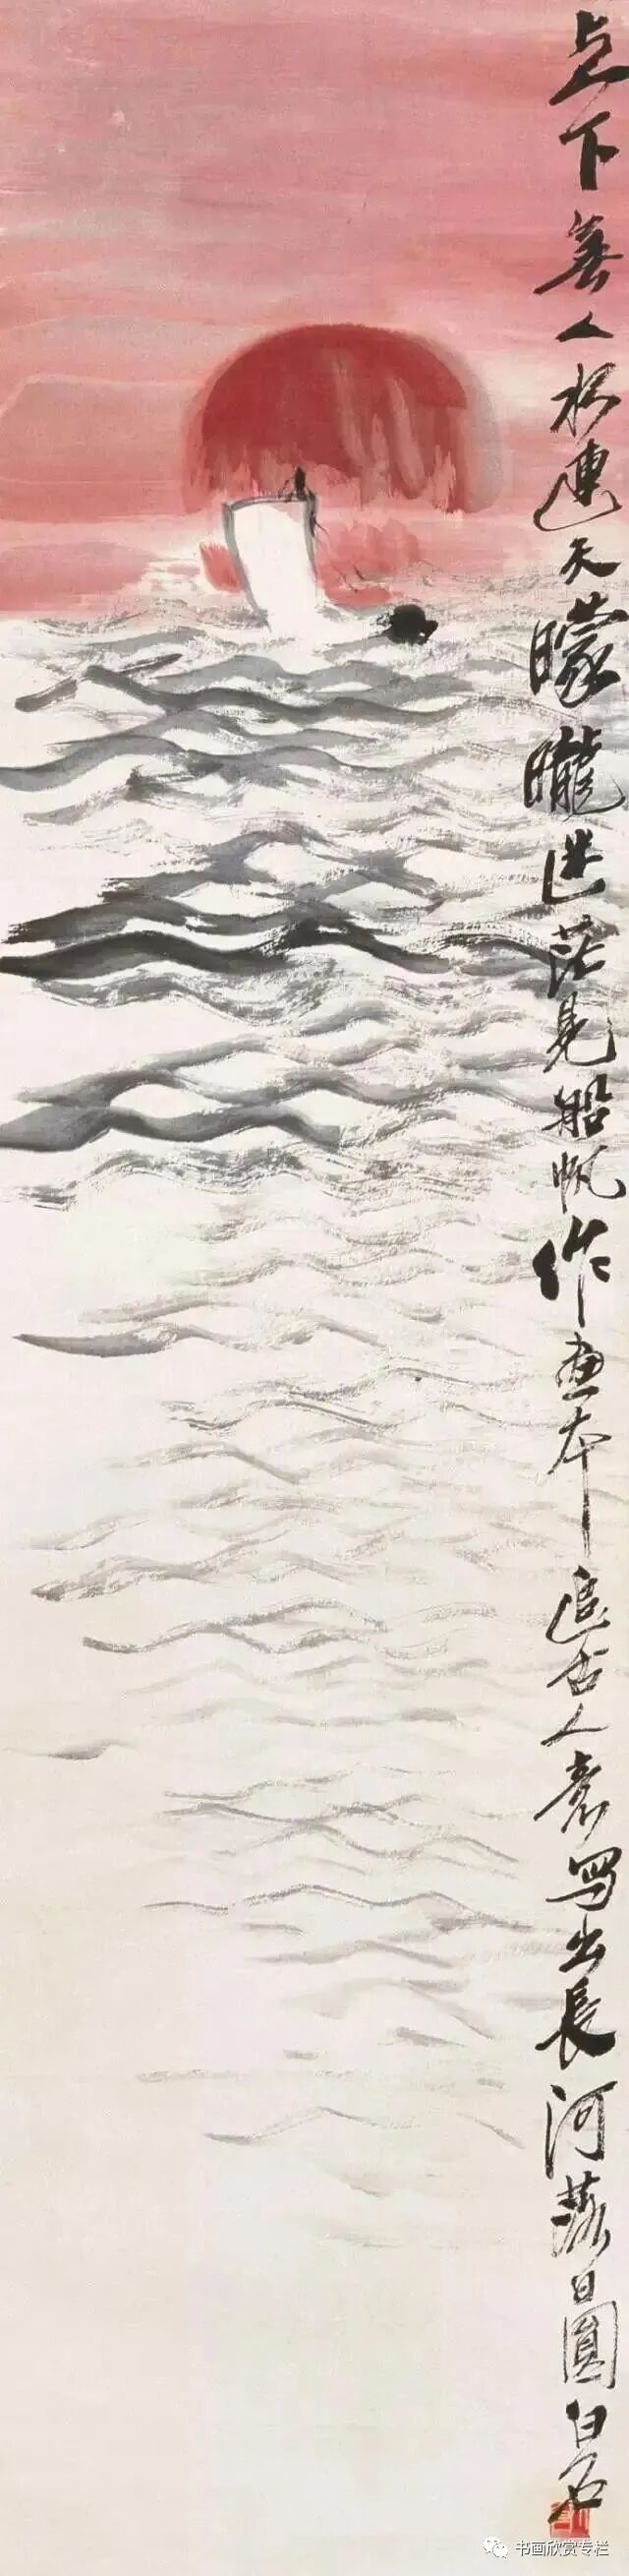 下無人水連天曚曨迷茫見船帆作畫本追古人意寫出長河落日圓白石
书画欣赏专栏